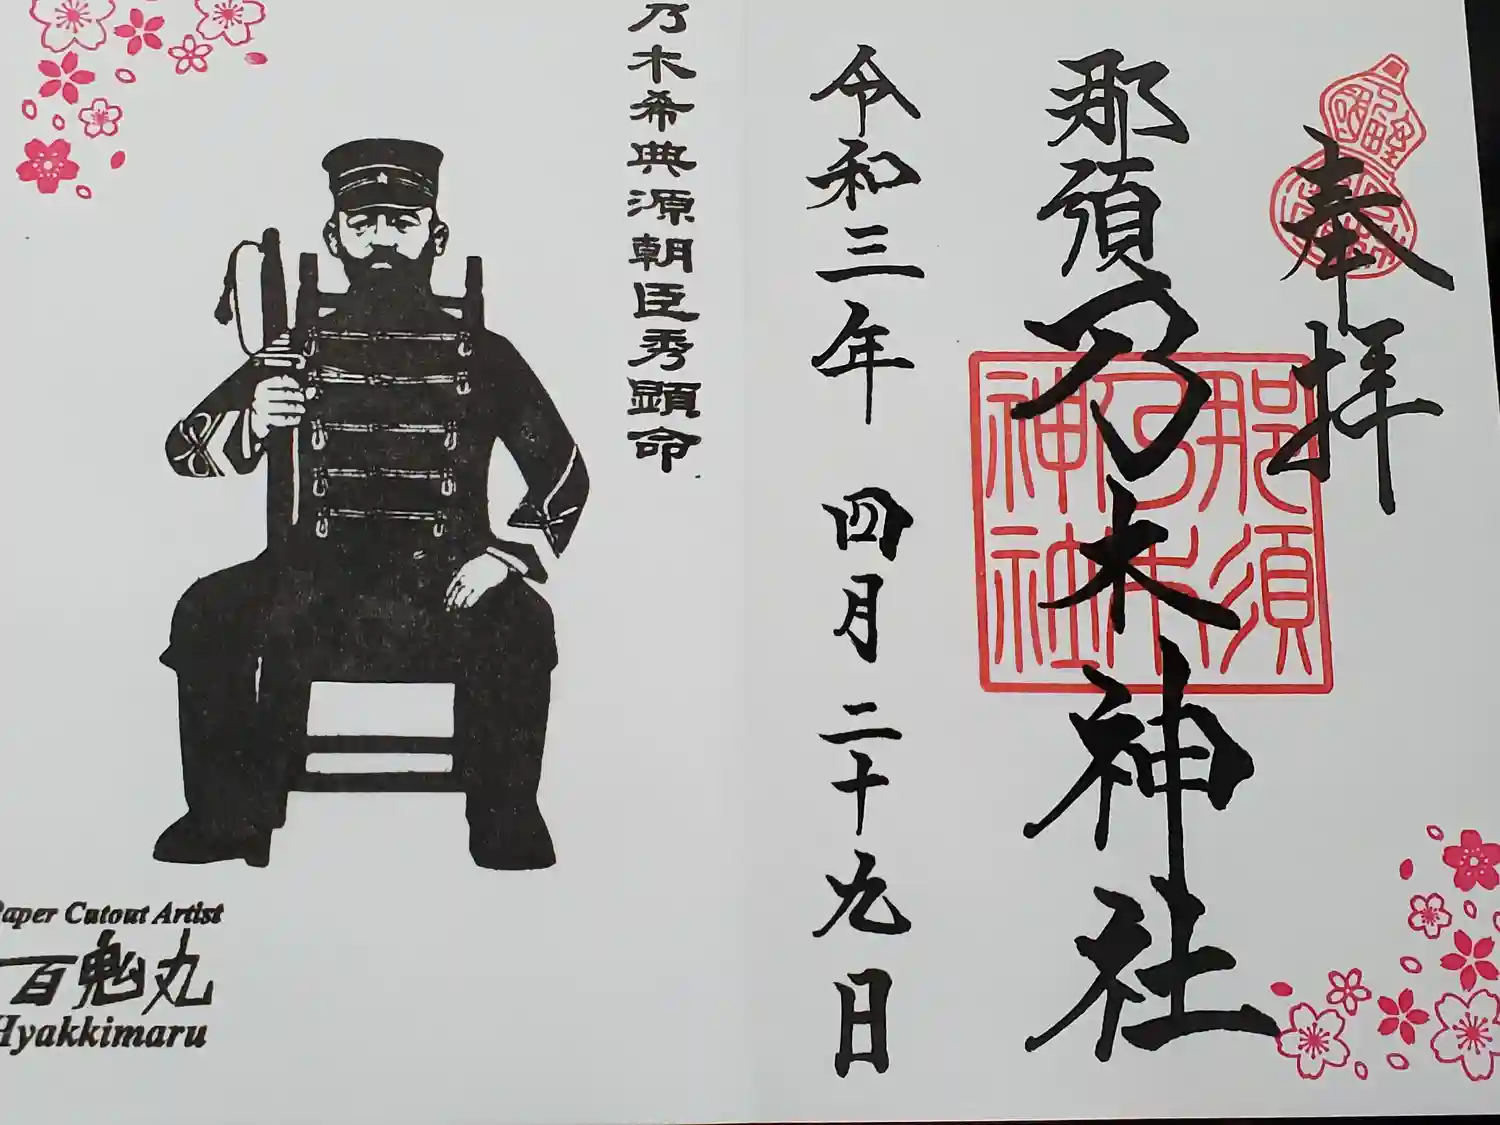 奉拝
那須乃木神社
那須
乃木
神社
令和三年 四月二十九日
乃木希典源朝臣秀顕命
Paper Cutout Artist
百鬼丸
Hyakkimaru